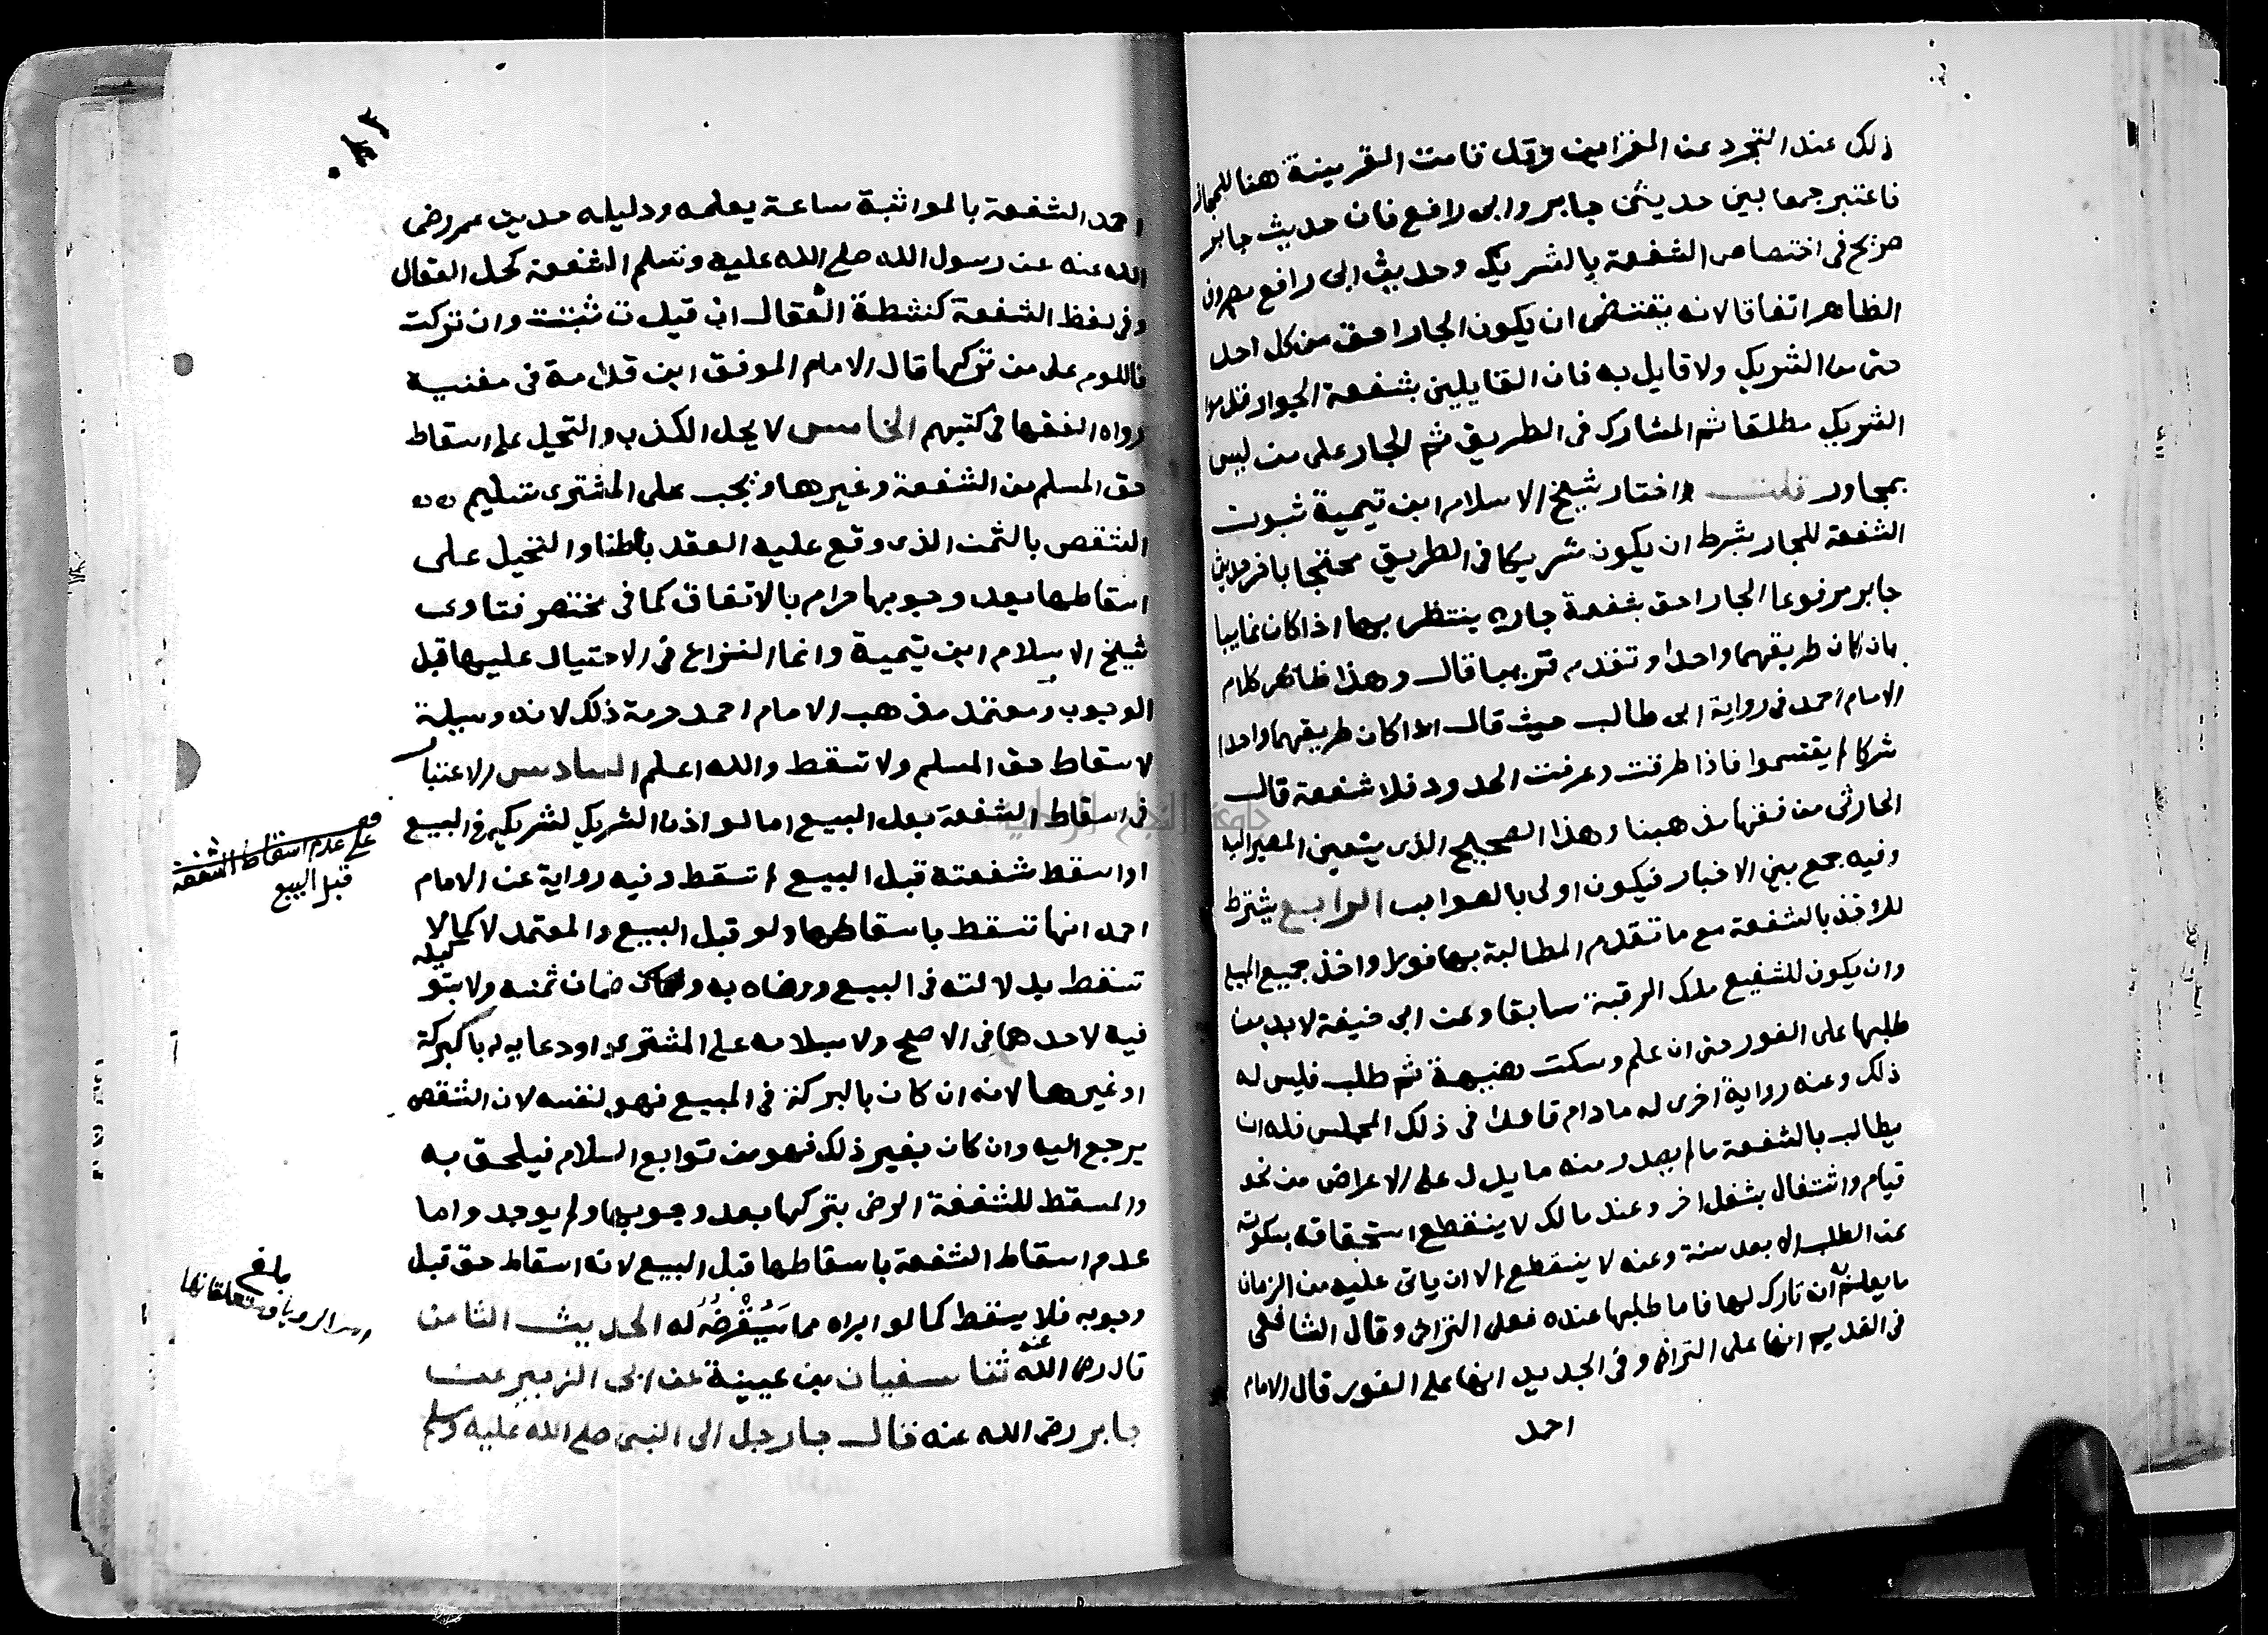 ذلك عند التجرد عن القراين وقد قامت القرينة هنا للمجاز
فاعتبر جمعا بين حديثى جابر وابى رافع فان حديث جابر
صريح فى اختصاص الشفعة بالشريك وحديث ابى رافع مصروف
الظاهر اتفاقا لانه يقتضى ان يكون الجار احق من كل احد
حتى من الشريك ولا قايل به فان القايلين بشفعة الجوار قدموا
الشريك مطلقا ثم المشارك فى الطريق ثم الجار على من ليس
بمجاور قلت واختار شيخ الاسلام ابن تيمية ثبوت
الشفعة للجار بشرط ان يكون شريكا فى الطريق محتجا باخر حديث
جابر مرفوعا الجار احق بشفعة جاره ينتظر بها اذا كان غايبا
بان كان طريقهما واحدا وتقدم قريبا قال وهذا ظاهر كلام
الامام احمد فى رواية ابى طالب حيث قال اذا كان طريقهما واحدا
شركا لم يقتسموا فاذا طرقت وعرفت الحدود فلا شفعة قال
الحارثى من فقهاء مذهبنا وهذا الصحيح الذى يتعين المصير اليه
وفيه جمع بين الاخبار فيكون اولى بالصواب الرابع يشترط
للاخذ بالشفعة مع ما تقدم المطالبة بها فورا واخذ جميع المبيع
وان يكون للشفيع ملك الرقبة سابقا وعن ابى حنيفة لا بد من
طلبها على الفور حتى ان علم وسكت هنيهة ثم طلب فليس له
ذلك وعنه رواية اخرى له ما دام قاعدا فى ذلك المجلس فله ان
يطالب بالشفعة ما لم يصدر منه ما يدل على الاعراض من نحو
قيام واشتغال بشغل اخر وعند مالك لا ينقطع استحقاقه بسكوته
عن الطلب الا بعد سنة وعنه لا ينقطع الا ان ياتى عليه من الزمان
ما يعلم به ان تارك لها فاما طلبها عنده فعلى التراخى وقال الشافعى
فى القديم انها على التراخى وفى الجديد انها على الفور قال الامام
احمد
احمد الشفعة بالمواثبة ساعة يعلمه ودليله حديث عمر رضى
الله عنه عن رسول الله صلى الله عليه وسلم الشفعة كحل العقال
وفى لفظ الشفعة كنشطة العقال ان قيدت ثبتت وان تركت
فاللوم على من تركها قال الامام الموفق ابن قدامة فى مغنيه
رواه الفقها فى كتبهم الخامس لا يحل الكذب والتحيل على اسقاط
حق المسلم من الشفعة وغيرها ويجب على المشترى تسليم
الشقص بالثمن الذى وقع عليه العقد باطنا والتحيل على
اسقاطها بعد وجوبها حرام بالاتفاق كما فى مختصر فتاوى
شيخ الاسلام ابن تيمية وانما النزاع فى الاحتيال عليها قبل
الوجوب ومعتمد مذهب الامام احمد حرمة ذلك لانه وسيلة
لاسقاط حق المسلم ولا تسقط والله اعلم السادس الاعتبار
فى اسقاط الشفعة بعد البيع اما لو اذن الشريك لشريكه فى البيع
او اسقط شفعته قبل البيع لم تسقط وفيه رواية عن الامام
احمد انها تسقط باسقاطها ولو قبل البيع والمعتمد لا كما لا
تسقط بدلالته فى البيع ورضاه به وضمان ثمنه ولا بتو
كيله
فيه لاحدهما فى الاصح ولا بسلامه على المشترى او دعايه له بالبركة
او غيرها لانه ان كان بالبركة فى المبيع فهو لنفسه لان الشقص
يرجع اليه وان كان بغير ذلك فهو من توابع السلام فيلحق به
والمسقط للشفعة الرضى بتركها بعد وجوبها ولم يوجد واما
عدم اسقاط الشفعة باسقاطها قبل البيع لانه اسقاط حق قبل
وجوبه فلا يسقط كما لو ابراه مما سَيُقْرِضُه له الحديث الثامن
قال رضى الله عنه ثنا سفيان بن عيينة عن ابى الزبير عن
جابر رضى الله عنه قال جا رجل الى النبى صلى الله عليه وسلم
على عدم اسقاط الشفعة
قبل البيع
بلغ